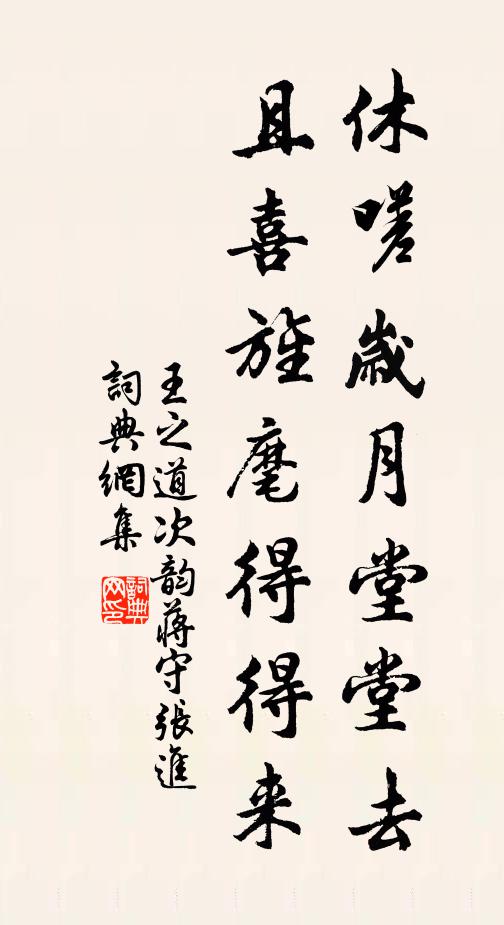 休嗟歲月堂堂去
且喜旌麾得得来
王之道次韵蔣守張進
詞典網集
詞典
网印